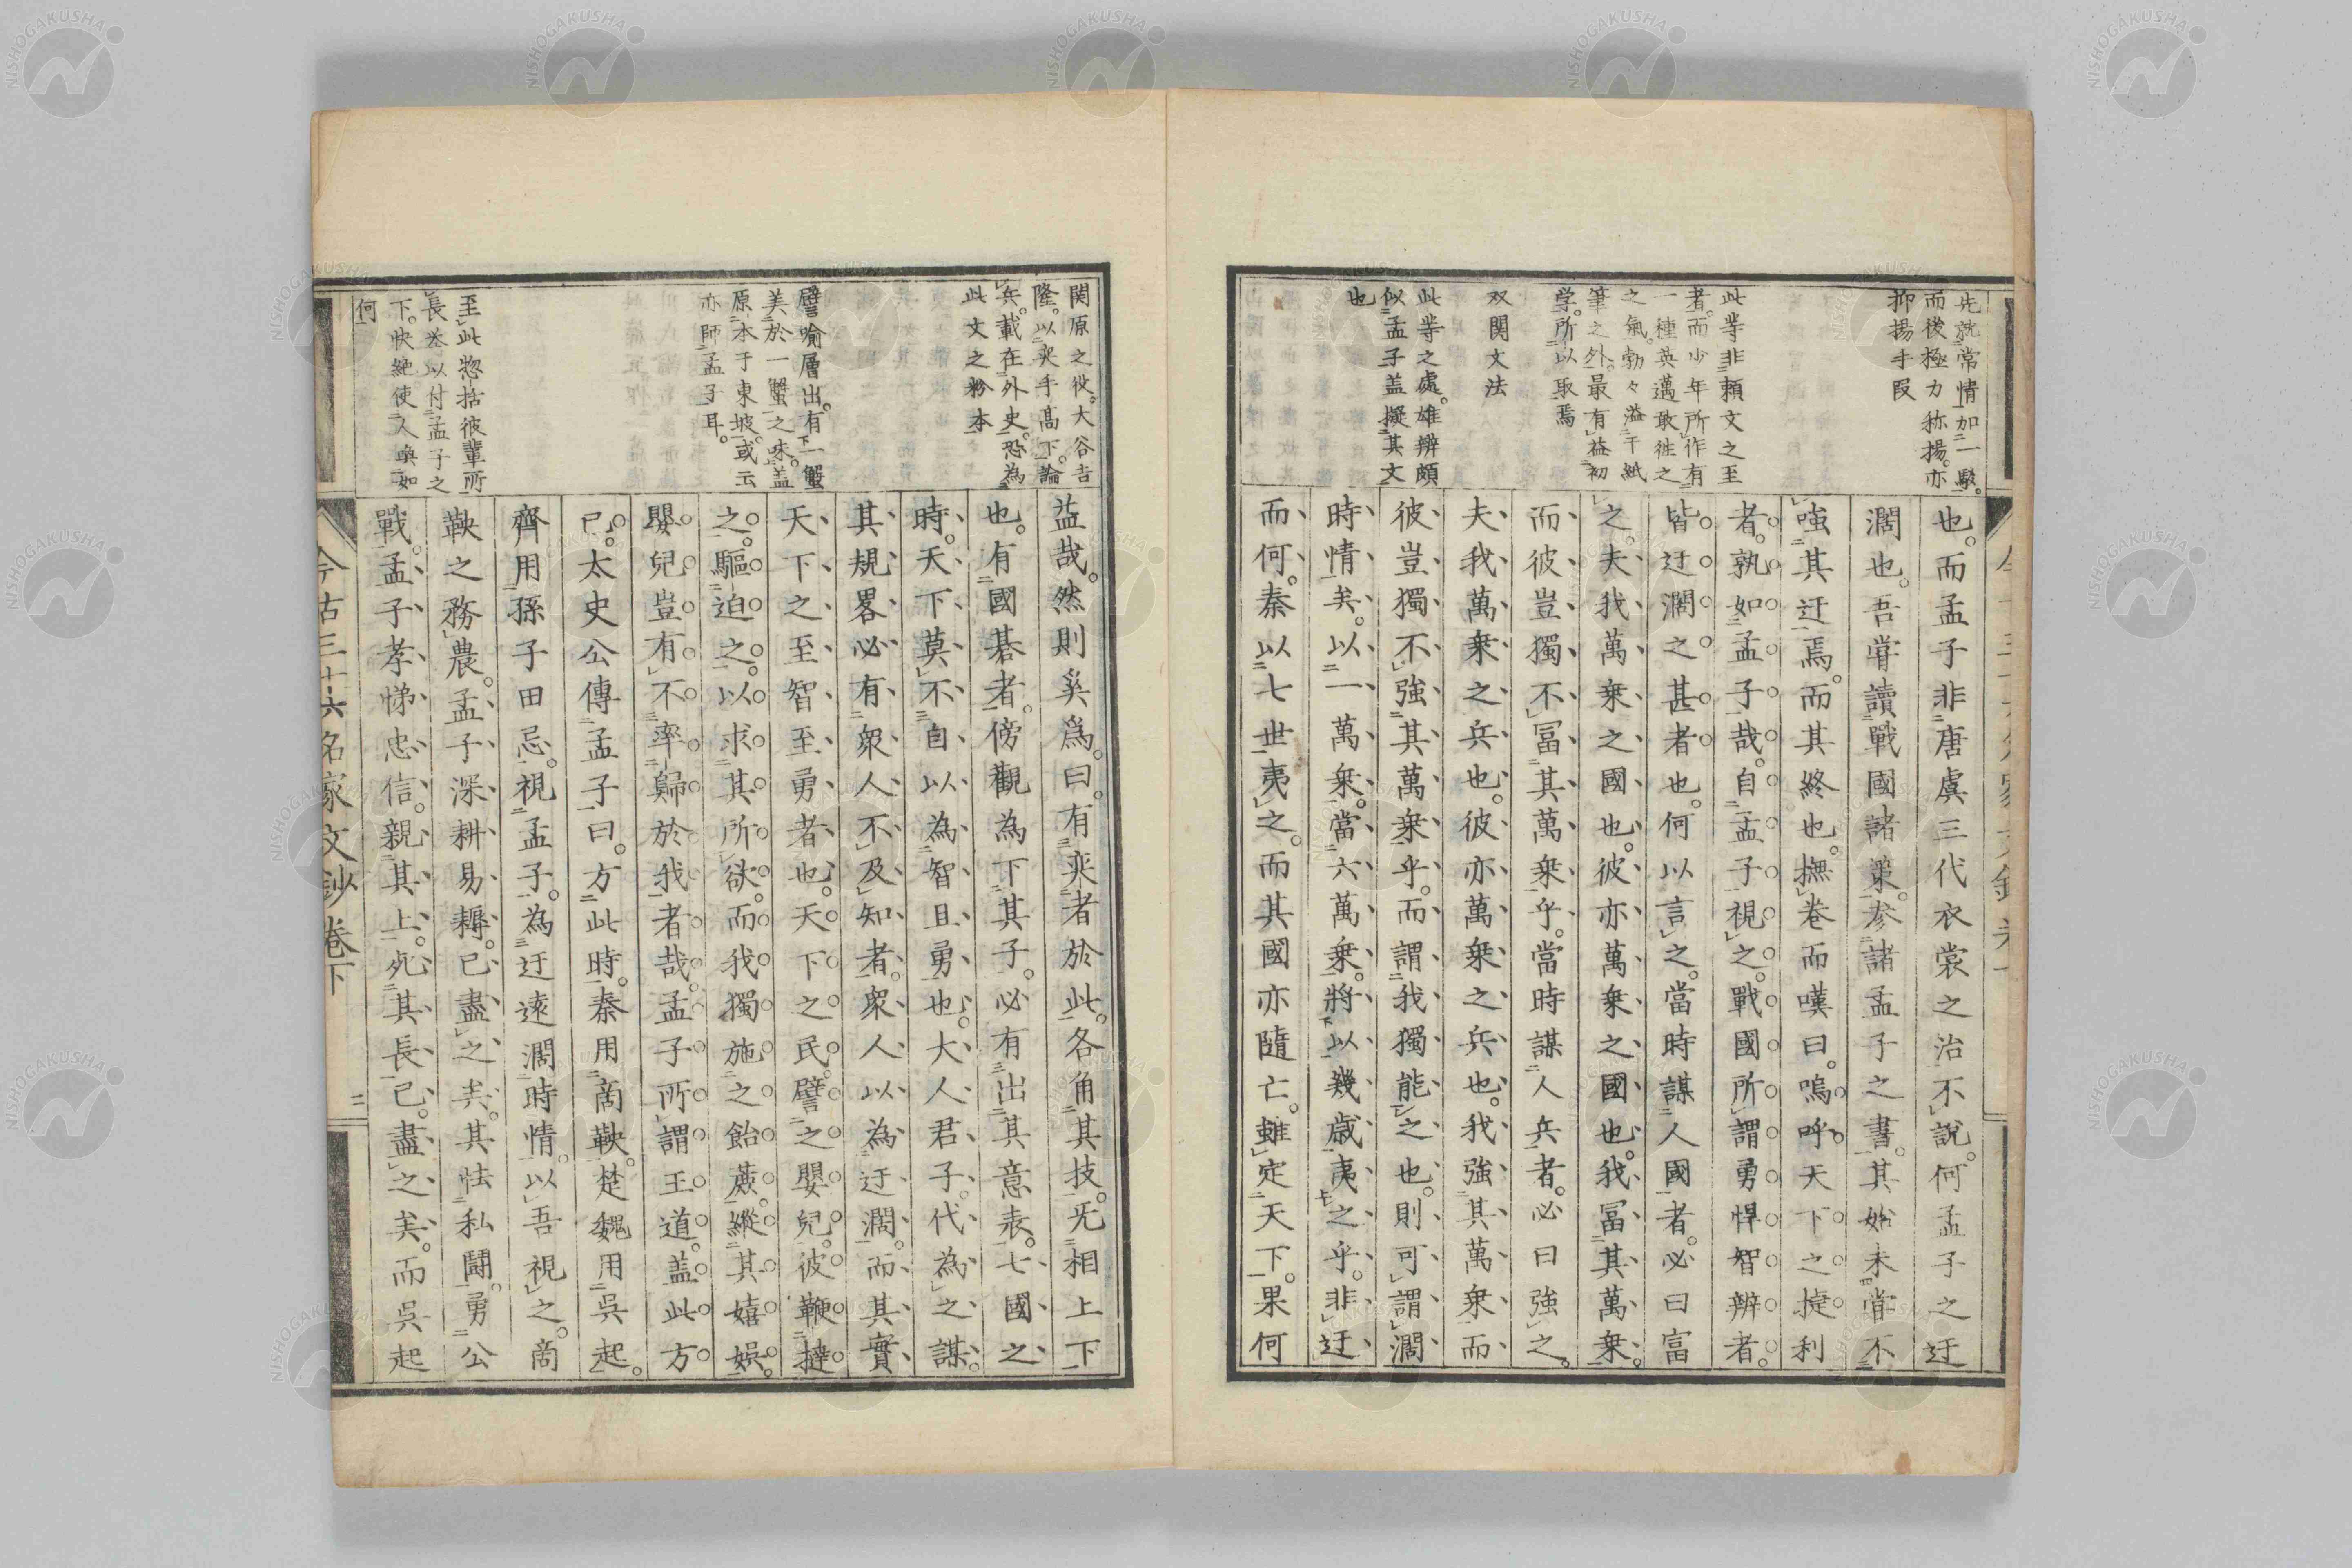 先就常情加一駁。
而後極力称揚。亦
抑揚手段
此等非頼文之至
者。而少年所作有
一種英邁敢徃之
之氣。勃々溢于紙
筆之外。最有益初
学。所以取焉
双関文法
此等之處。雄辨頗
似孟子蓋擬其文
也
也。而孟子非唐虞三代衣裳之治不說。何孟子之迂
濶也。吾甞讀戰國諸策。参諸孟子之書。其始未甞不
嗤其迂焉。而其終也。撫卷而嘆曰。嗚呼天下之捷利
者。孰如孟子哉。自孟子視之。戰國所謂勇悍智辨者。
皆迂濶之甚者也。何以言之。當時謀人國者。必曰富
之。夫我萬乗之國也。彼亦萬乗之國也。我冨其萬乗。
而彼豈獨不冨其萬乗乎。當時謀人兵者。必曰強之。
夫我萬乗之兵也。彼亦萬乗之兵也。我強其萬乗而
彼豈獨不強其萬乗乎。而謂我獨能之也。則可謂濶
時情矣。以一萬乗。當六萬乗。將以幾歳夷之乎。非迂
而何。秦以七世夷之。而其國亦隨亡。雖定天下。果何
関原之役。大谷吉
隆。以奕手高下。論
兵。載在外史。恐為
此文之粉本
譬喩層出。有一蟹
美於一蟹之味。蓋
原本于東坡。或云
亦師孟子耳。
至此惣括彼輩所
長。巻以付孟子之
下。快絶使人喚如
何
益哉。然則奚爲。曰。有奕者於此。各角其技。旡相上下
也。有國碁者。傍觀為下其子。必有出其意表。七國之
時。天下莫不自以為智且勇也。大人君子。代為之謀。
其規畧必有衆人不及知者。衆人以為迂濶。而其實
天下之至智至勇者也。天下之民。譬之嬰兒。彼鞭撻
之。驅迫之。以求其所欲。而我獨施之飴蔗。縱其嬉娯。
嬰兒豈有不率歸於我者哉。孟子所謂王道。盖此方
已。太史公傳孟子曰。方此時。秦用商鞅。楚魏用呉起。
齊用孫子田忌。視孟子。為迂遠濶時情。以吾視之。商
鞅之務農。孟子深耕易耨。已盡之矣。其怯私鬪。勇公
戰。孟子孝悌忠信。親其上。死其長。已盡之矣。而呉起
今古三十六名家文鈔卷下
二